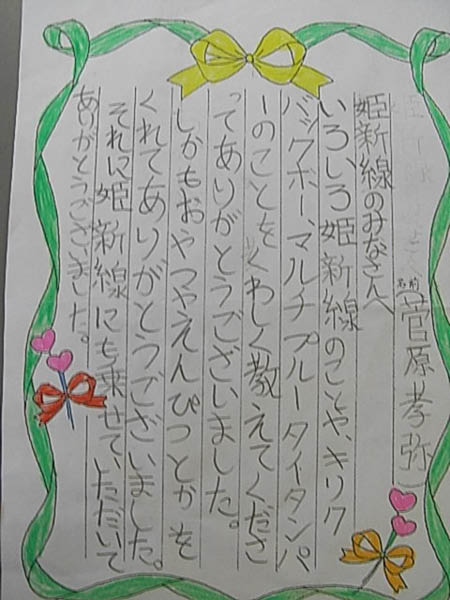 名前(菅原孝弥)
姫新線のみなさんへ
いろいろ姫新線のことや、キリク
バックボー、マルチプルータイタンパ
ーのことをくわしく教えてくださ
ってありがとうございました。
しかもおやつやえんぴつとかを
くれてありがとうございました。
それに姫新線にも乗せていただいて
ありがとうございました。